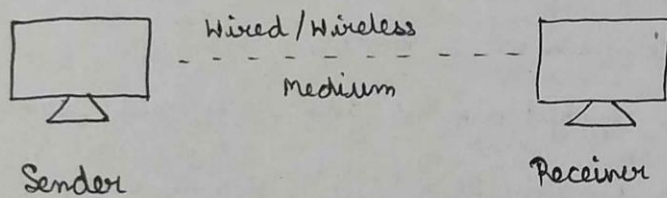 Wired/Wireless
Medium
Sender
Receiver